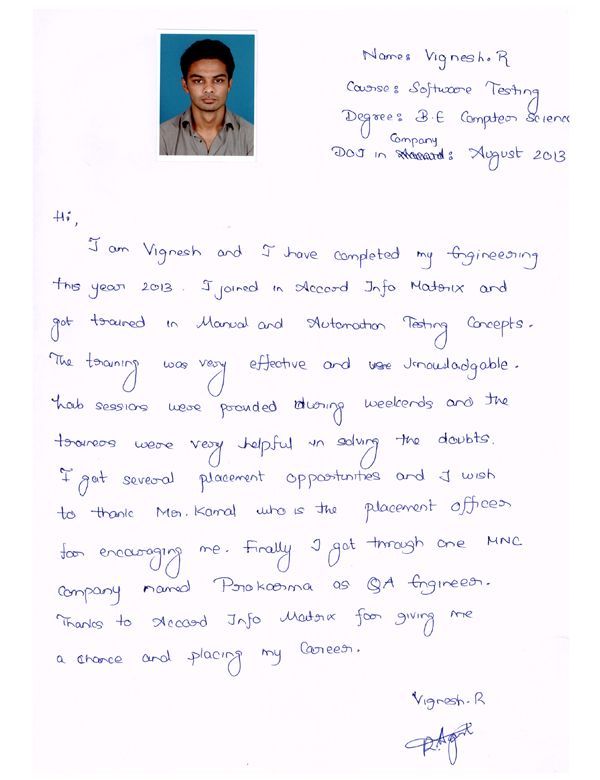 Name: Vignesh.R
Course: Software Testing
Degree: B.E Computer Science
Company
DOJ in : August 2013
Hi,
I am Vignesh and I have completed my Engineering
this year 2013. I joined in Accord Info Matrix and
got trained in Manual and Automation Testing Concepts.
The training was very effective and knowladgable.
Lab sessions were provided during weekends and the
trainers were very helpful in solving the doubts.
I got several placement opportunities and I wish
to thank Mr. Kamal who is the placement officer
for encouraging me. Finally I got through one MNC
company named Prokarma as QA Engineer.
Thanks to Accord Info Matrix for giving me
a chance and placing my Career.
Vignesh.R